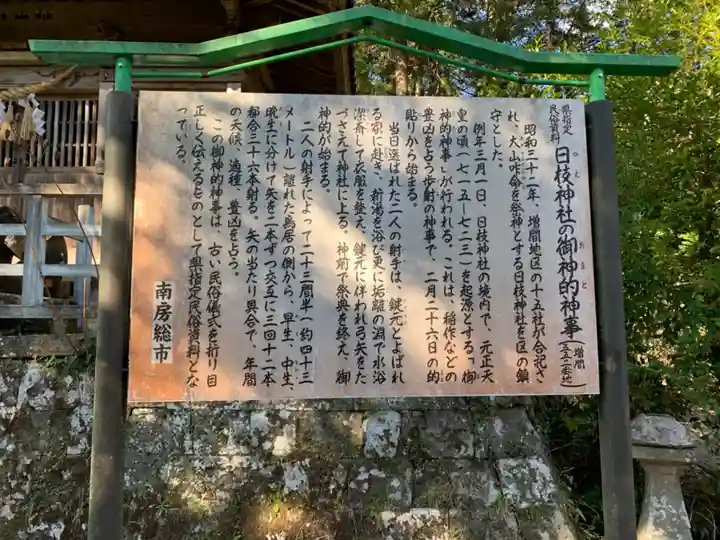 県指定
民俗資料
日枝神社の御神的神事
ひえ
おまと
(増間
五五二番地)
昭和三十二年、増間地区の十五社が合祀さ
れ、大山咋命を祭神とする日枝神社を区の鎮
守とした。
例年三月一日、日枝神社の境内で、元正天
皇の頃(七一五~七二三)を起源とする「御
神的神事」が行われる。これは、稲作などの
豊凶を占う歩射の神事で、二月二十六日の的
貼りから始まる。
当日選ばれた二人の射手は、鍵元とよばれ
る家に赴き、新湯を浴び更に垢離の淵で水浴
潔斎して衣服を整え、鍵元に伴われ弓矢をた
づさえて神社に上る。神前で祭典を終え、御
神的が始まる。
二人の射手によって二十三間半(約四十三
メートル)離れた鳥居の側から、早生、中生、
晩生に分けて矢を二本ずつ交互に三回十二本
都合三十六本射る。矢の当たり具合で、年間
の天候、適種、豊凶を占う。
この御神的神事は、古い民俗儀式を折り目
正しく伝えるものとして県指定民俗資料とな
っている。
南房総市